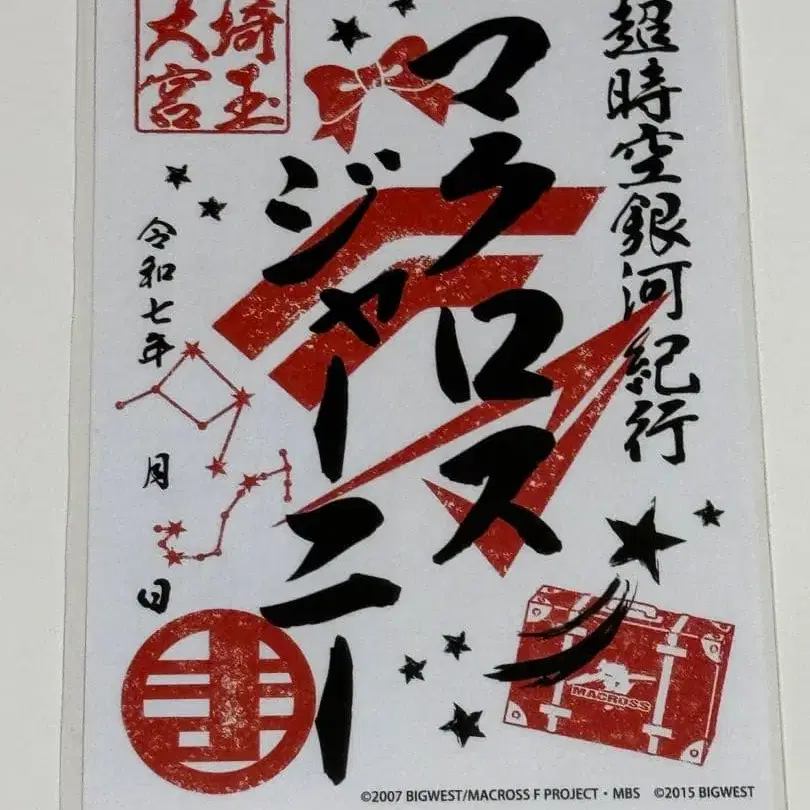 超時空銀河紀行
マクロス
ジャーニー
埼玉
大宮
令和七年
月
日
MACROSS
©2007 BIGWEST/MACROSS F PROJECT・MBS ©2015 BIGWEST